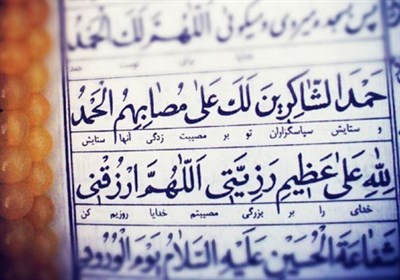 پس بسجده میروی و میگوئی اَللّٰهُمَّ لَكَ الْحَمْدُ
حَمْدَ الشَّاكِرينَ لَكَ عَلىٰ مُصٰابِهِمْ اَلْحَمْدُ
و ستایش سپاسگزاران تو بر مصیبت زدگی آنها ستایش
لِلّٰهِ عَلىٰ عَظيمِ رَزِيَّتى اَللّٰهُمَّ ارْزُقْنى
خدای را بر بزرگی مصیبتم خدایا روزیم کن
شَفٰاعَةَ الْحُسَيْنِ عَلَيْهِ السَّلٰامُ يَوْمَ الْوُرُودِ